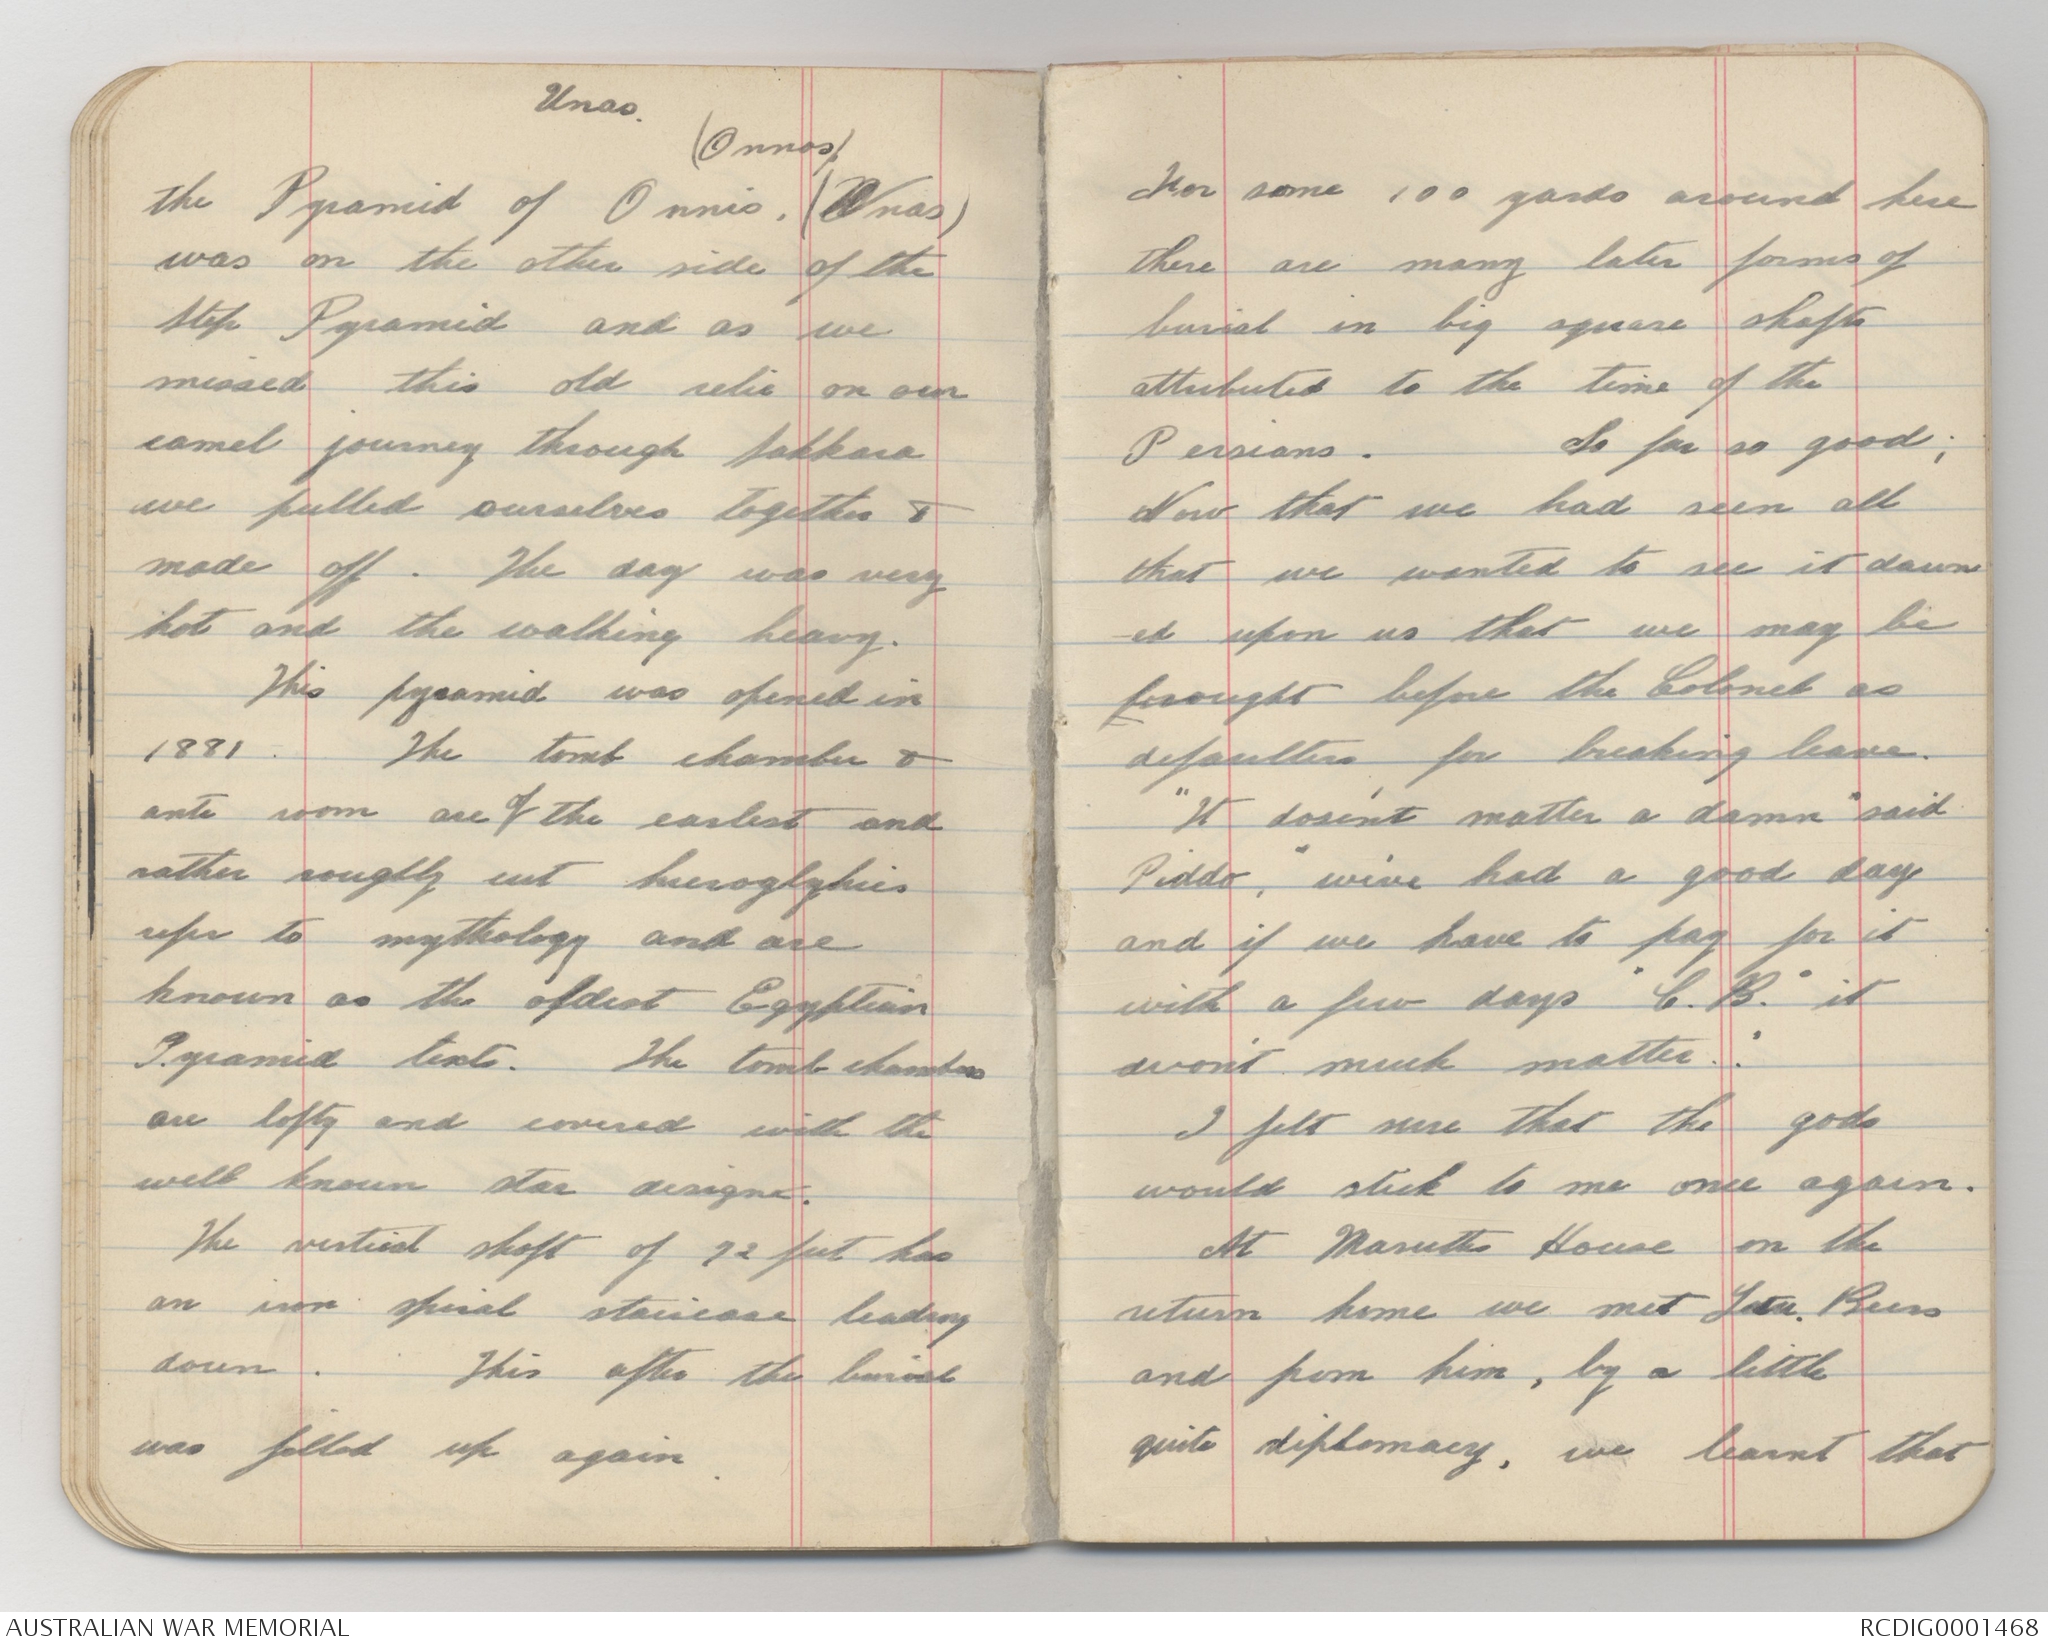 Unas.
(Onnos)
the Pyramid of Onnis. (Unas)
was on the other side of the
Step Pyramid and as we
missed this old relic on our
camel journey through Sakkara
we pulled ourselves together &
made off. The day was very
hot and the walking heavy.
This pyramid was opened in
1881. The tomb chamber &
ante room are of the earliest and
rather roughly cut hieroglyphics
refer to mythology and are
known as the oldest Egyptian
Pyramid texts. The tomb chambers
are lofty and covered with the
well known star designe.
The vertical shaft of 72 feet has
an iron spiral staircase leading
down. This after the burial
was filled up again.
For some 100 yards around here
there are many later forms of
burial in big square shafts
attributed to the time of the
Persians. So far so good;
Now that we had seen all
that we wanted to see it dawn
-ed upon us that we may be
brought before the Colonel as
defaulters for breaking leave.
"It dosen't matter a damn" said
Piddo, "we've had a good day
and if we have to pay for it
with a few days "C.B." it
won't much matter."
I felt sure that the gods
would stick to me once again.
At Maruttes House on the
return home we met Lieu. Beers
and from him, by a little
quite diplomacy, we learnt that
AUSTRALIAN WAR MEMORIAL
RCDIG0001468